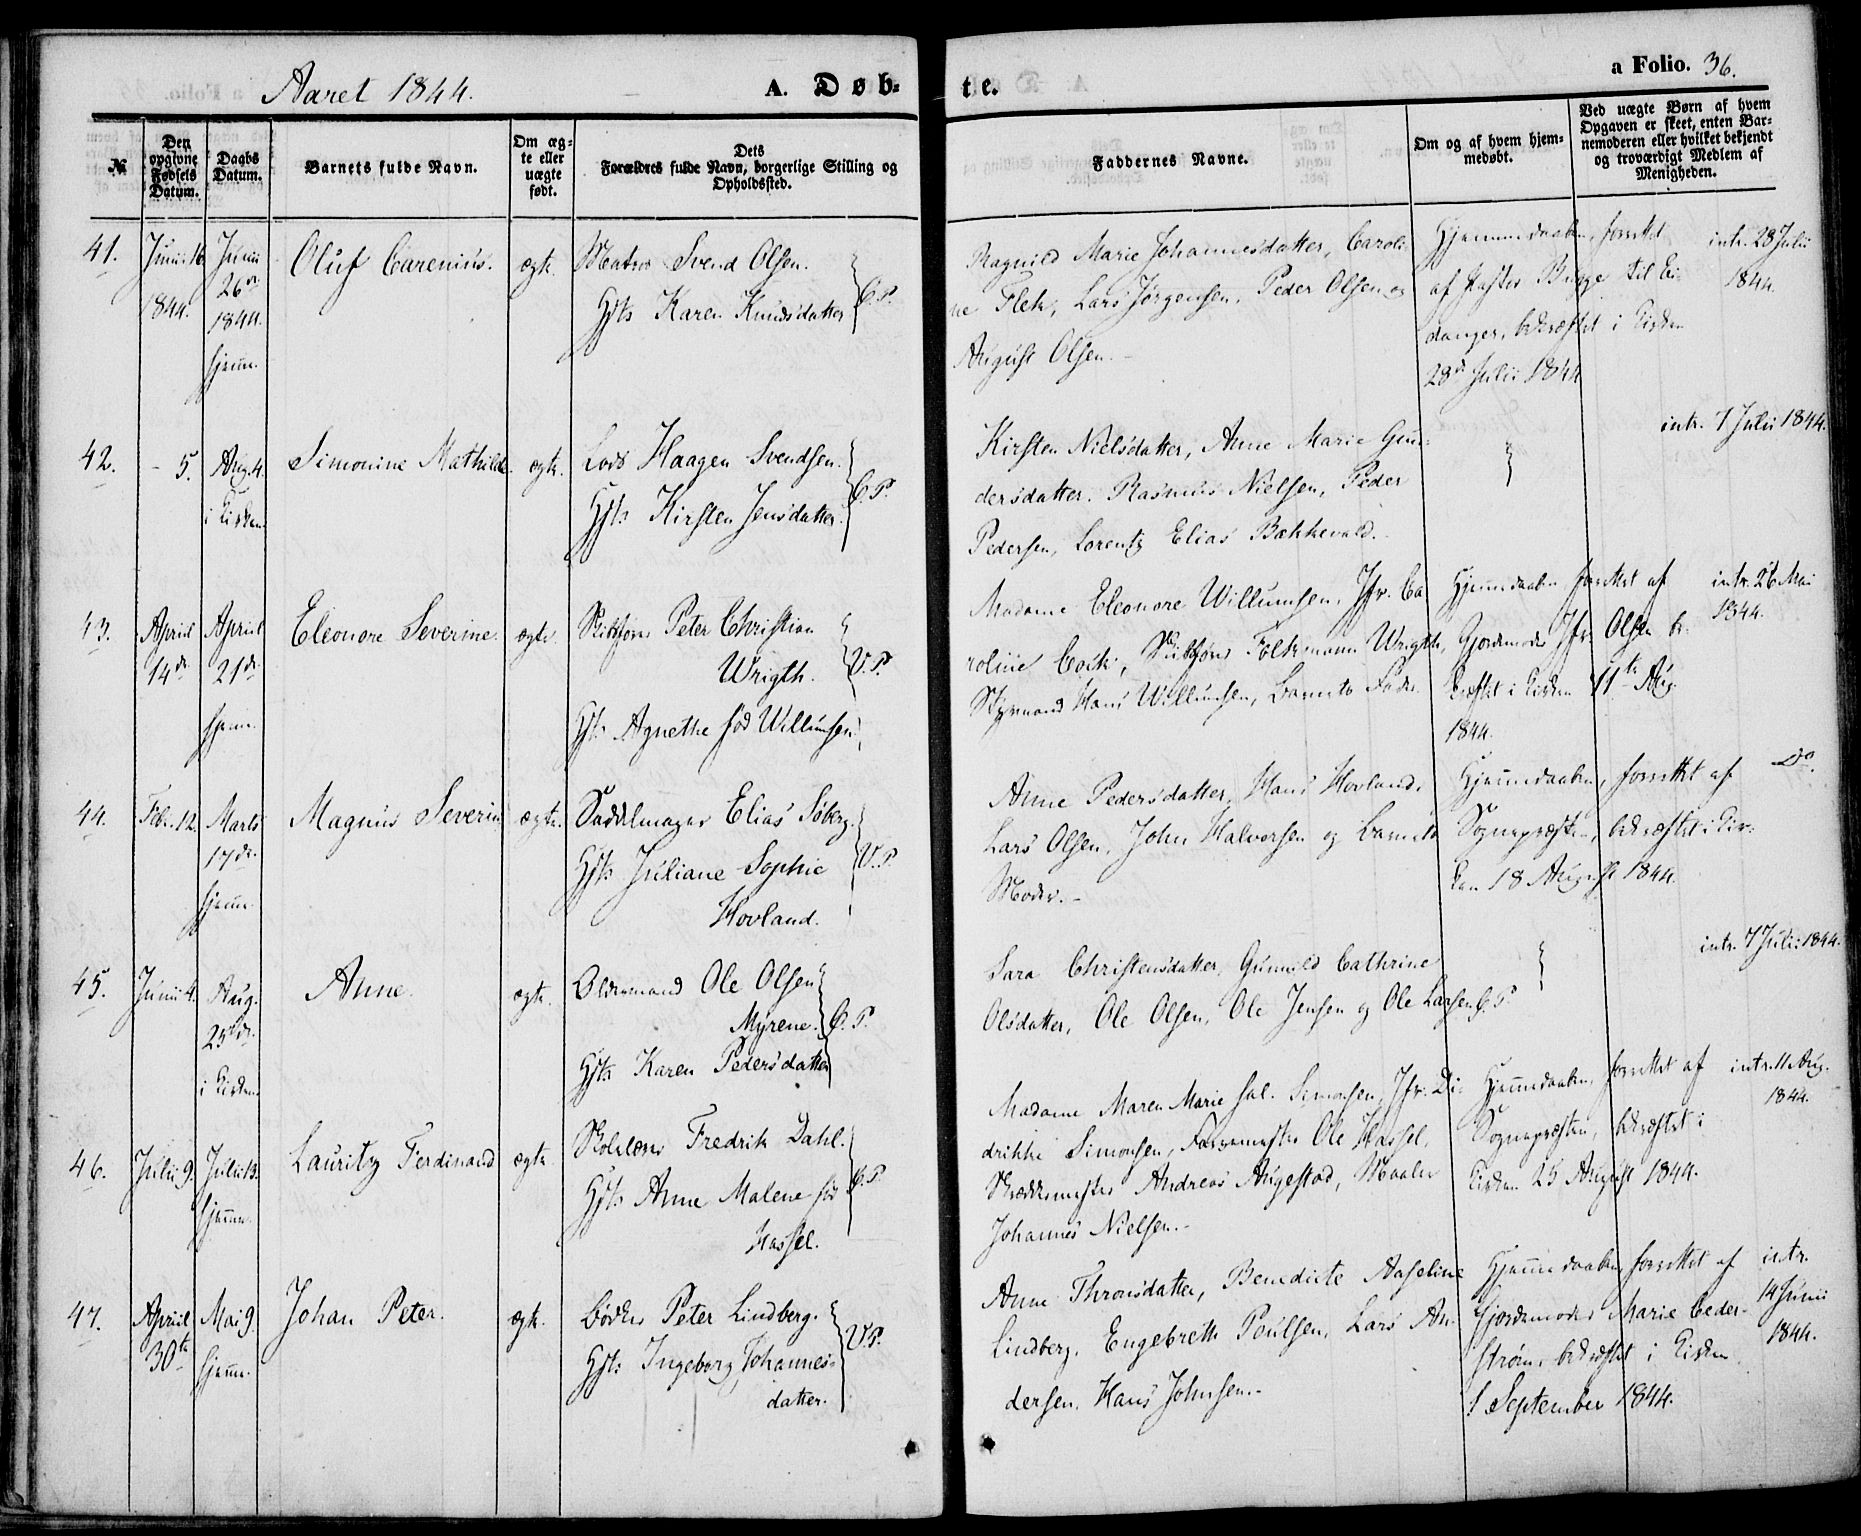 Aaret 1844.
A. Døb-
te.
a Folio. 36.
№
Den
opgivne
Fødsels
Datum.
Daabs
Datum.
Barnets fulde Navn.
Om æg-
te eller
uægte
født.
Dets
Forældres fulde Navn, borgerlige Stilling og
Opholdssted.
Faddernes Navne.
Om og af hvem hjem-
medøbt.
Ved uægte Børn af hvem
Opgaven er skeet, enten Bar-
nemoderen eller hvilket bekjendt
og troværdigt Medlem af
Menigheden.
41.
Junii 16
1844.
Junii
26de
1844.
hjem.
Oluf Carenius.
ægte.
Matros Svend Olsen.
Hst: Karen Knudsdatter
Ragnild Marie Johannesdatter, Caroli-
ne Flek, Lars Jørgensen, Peder Olsen og
August Olsen.
Hjemmedaaben, forrettet
af Pastor Bugge til Ei-
danger, bekræftet i Kirken
28de Julii 1844
intr. 28 Julii
1844.
42.
- 5.
Aug. 4.
i Kirken
Simonine Mathilde.
ægte.
Lods Haagen Svendsen.
Hst: Kirsten Jensdatter.
Kirsten Nielsdatter, Anne Marie Gun-
dersdatter. Rasmus Nielsen, Peder
Pedersen, Lorentz Elias Bækkevald.
intr. 7 Julii 1844.
43.
April
14de
April
21de
hjem.
Eleonore Severine.
ægte.
Skibsfører Peter Christian
Wrigth.
V.P.
Hst: Agnethe fød Willumsen
Madame Eleonore Willumsen, Jfr. Ca-
roline Cock, Skibsfører Folkmann Wrigth,
Styrmand Hans Willumsen, Barnets Fader.
Hjemmedaaben forrettet af
Gjordemoder Jfr. Olsen be-
kræftet i Kirken 11te Aug.
1844.
intr. 26 Mai
1844.
44.
Febr. 12.
Marts
17de.
hjem.
Magnus Severin
ægte.
Saddelmager Elias Søberg.
Hst: Juliane Sophie
Hovland.
V.P.
Anne Pedersdatter, Hans Hovland,
Lars Olsen, John Halvorsen og Barnets
Moder.-
Hjemmedaaben, forrettet af
Sognepræsten, bekræftet i Kir-
ken 18 August 1844.
Do.
45.
Junii 4.
Aug.
25de.
i Kirken
Anne.
ægte.
Oldermand Ole Olsen
Myrene.
Hst: Karen Pedersdatter
Sara Christensdatter, Gunnild Cathrine
Olsdatter, Ole Olsen, Ole Jensen og Ole Larsen
intr. 7 Julii 1844.
46.
Julii 9.
Julii 13.
hjem.
Lauritz Ferdinand
ægte
Skolelærer Fredrik Dahl.
Hst: Anne Malene fød
Hassel.
Madame Maren Marie sal. Simonsen, Jfr. Di-
drikke Simonsen, Farvemester Ole Hassel,
Skræddermester Andreas Augestad, Maaler
Johannes Nielsen.-
Hjemmedaaben, forrettet af
Sognepræsten, bekræftet i
Kirken 25 August 1844.
intr. 11 Aug.
1844.
47.
April
30te
Mai 9.
hjem.
Johan Peter.
ægte.
Bødker Peter Lindberg.
Hst: Ingeborg Johannes-
datter.
V.P.
Anne Thronsdatter, Benedicte Aaseline
Lindberg, Engebreth Poulsen, Lars An-
dersen, Hans Johnsen.-
Hjemmedaaben forrettet af
Gjordemoder Marie Ceder-
strøm, bekræftet i Kirken
1 September 1844.
intr.
14 Junii
1844.